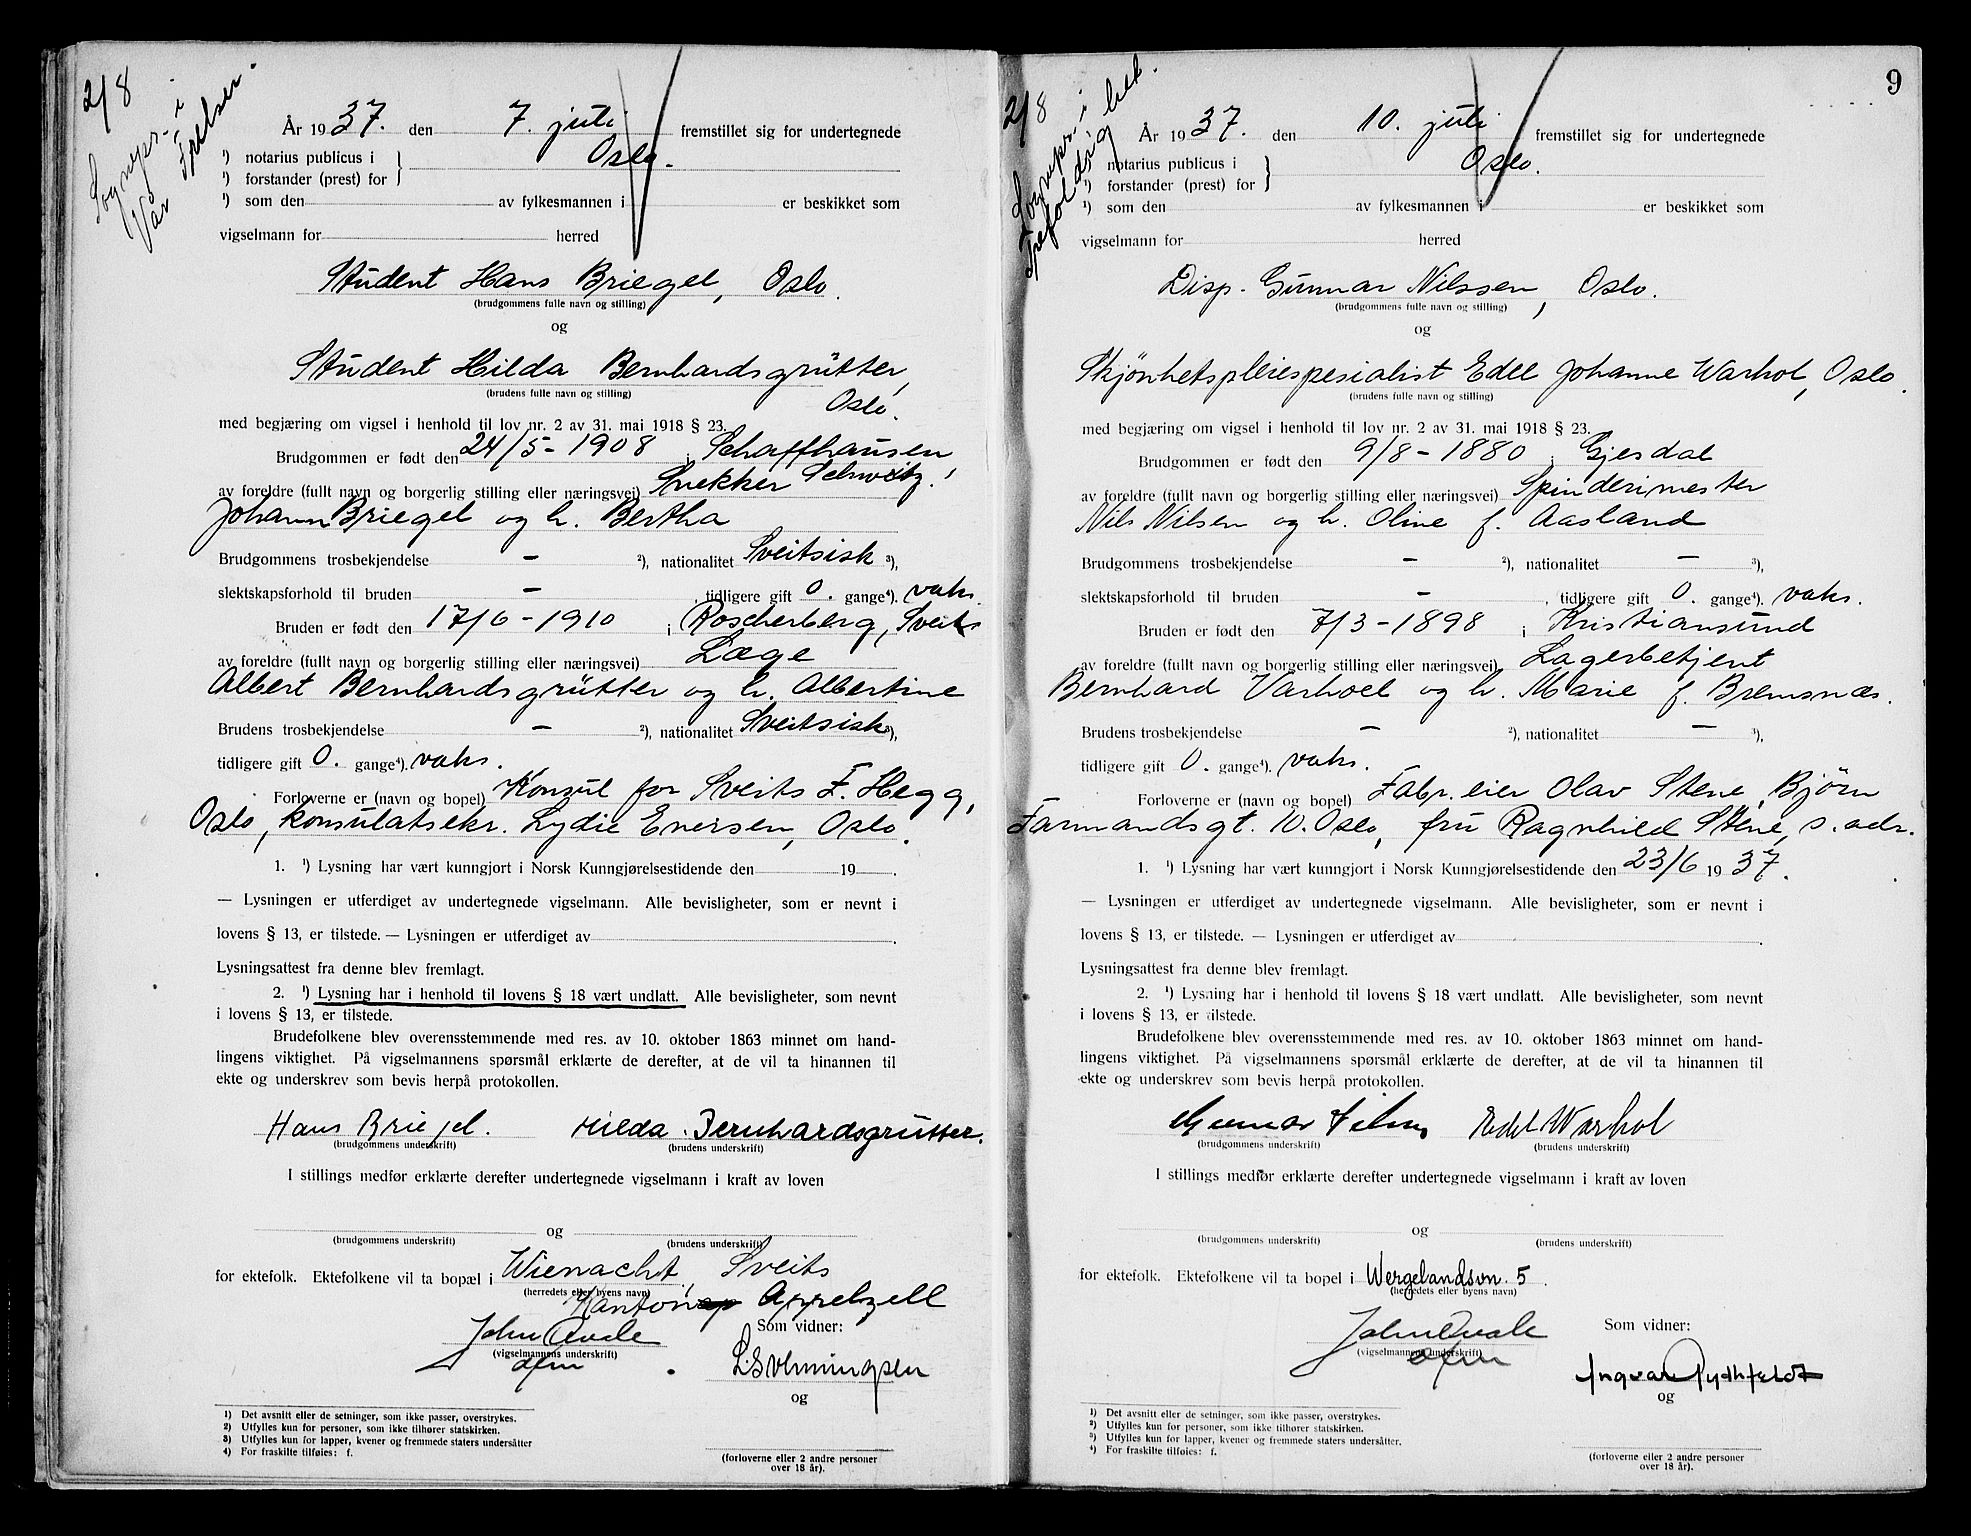 2/8
Sognepr. i
Vår Frelser.
År 1937. den 7. juli fremstillet sig for undertegnede
¹) notarius publicus i Oslo.
¹) forstander (prest) for
¹) som den av fylkesmannen i er beskikket som
vigselmann for herred
Student Hans Briegel, Oslo.
(brudgommens fulle navn og stilling)
og
Student Hilda Bernhardsgrütter,
(brudens fulle navn og stilling)
Oslo.
med begjæring om vigsel i henhold til lov nr. 2 av 31. mai 1918 § 23.
Brudgommen er født den 24/5 - 1908 i Schaffhausen
Schweitz.
av foreldre (fullt navn og borgerlig stilling eller næringsvei) Snekker
Johann Briegel og h. Bertha
Brudgommens trosbekjendelse - ²), nationalitet Sveitsisk ³),
slektskapsforhold til bruden - , tidligere gift 0. gange⁴). vaks.
Bruden er født den 17/6 - 1910 i Roscherberg, Sveits
av foreldre (fullt navn og borgerlig stilling eller næringsvei) Læge
Albert Bernhardsgrütter og h. Albertine
Brudens trosbekjendelse - ²), nationalitet Sveitsisk ³),
tidligere gift 0. gange⁴). vaks.
Forloverne er (navn og bopel) Konsul for Sveits F. Hegg,
Oslo, konsulatsekr. Lydie Eversen, Oslo.
1. ¹) Lysning har vært kunngjort i Norsk Kunngjørelsestidende den 19 .
— Lysningen er utferdiget av undertegnede vigselmann. Alle bevisligheter, som er nevnt i
lovens § 13, er tilstede. — Lysningen er utferdiget av .
Lysningsattest fra denne blev fremlagt.
2. ¹) Lysning har i henhold til lovens § 18 vært undlatt. Alle bevisligheter, som nevnt
i lovens § 13, er tilstede.
Brudefolkene blev overensstemmende med res. av 10. oktober 1863 minnet om hand-
lingens viktighet. På vigselmannens spørsmål erklærte de derefter, at de vil ta hinannen til
ekte og underskrev som bevis herpå protokollen.
Hans Briegel. Hilda Bernhardsgrütter.
(brudgommens underskrift) (brudens underskrift)
I stillings medfør erklærte derefter undertegnede vigselmann i kraft av loven
og
(brudgommens underskrift) (brudens underskrift)
for ektefolk. Ektefolkene vil ta bopæl i Wienacht, Sveits
(herredets eller byens navn)
Kanton Appelzell
John Qvale Som vidner:
(vigselmannens underskrift)
ofm L. Svenningsen
og
¹) Det avsnitt eller de setninger, som ikke passer, overstrykes.
²) Utfylles kun for personer, som ikke tilhører statskirken.
³) Utfylles kun for lapper, kvener og fremmede staters undersåtter
⁴) For fraskilte tilføies: f.
(forloverne eller 2 andre personer
over 18 år).
9
2/8
Sognepr. i
Trefoldighet.
År 1937. den 10. juli fremstillet sig for undertegnede
¹) notarius publicus i Oslo.
¹) forstander (prest) for
¹) som den av fylkesmannen i er beskikket som
vigselmann for herred
Disp. Gunnar Nilssen, Oslo.
(brudgommens fulle navn og stilling)
og
Skjønhetspleiespesialist Edel Johanne Warhol, Oslo.
(brudens fulle navn og stilling)
med begjæring om vigsel i henhold til lov nr. 2 av 31. mai 1918 § 23.
Brudgommen er født den 9/8 - 1880 i Gjesdal
av foreldre (fullt navn og borgerlig stilling eller næringsvei) Spinderimester
Nils Nilsen og h. Oline f. Aasland
Brudgommens trosbekjendelse - ²), nationalitet - ³),
slektskapsforhold til bruden - , tidligere gift 0. gange⁴). vaks.
Bruden er født den 7/3 - 1898 i Kristiansund
av foreldre (fullt navn og borgerlig stilling eller næringsvei) Lagerbetjent
Bernhard Varhoel og h. Marie f. Bremsnæs.
Brudens trosbekjendelse - ²), nationalitet - ³),
tidligere gift 0. gange⁴). vaks.
Forloverne er (navn og bopel) Fabr.eier Olav Stene, Bjørn
Farmandsgt. 10. Oslo, fru Ragnhild Stene, s. adr.
1. ¹) Lysning har vært kunngjort i Norsk Kunngjørelsestidende den 23/6 1937.
— Lysningen er utferdiget av undertegnede vigselmann. Alle bevisligheter, som er nevnt i
lovens § 13, er tilstede. — Lysningen er utferdiget av .
Lysningsattest fra denne blev fremlagt.
2. ¹) Lysning har i henhold til lovens § 18 vært undlatt. Alle bevisligheter, som nevnt
i lovens § 13, er tilstede.
Brudefolkene blev overensstemmende med res. av 10. oktober 1863 minnet om hand-
lingens viktighet. På vigselmannens spørsmål erklærte de derefter, at de vil ta hinannen til
ekte og underskrev som bevis herpå protokollen.
Gunnar Nilssen Edel Warhol
(brudgommens underskrift) (brudens underskrift)
I stillings medfør erklærte derefter undertegnede vigselmann i kraft av loven
og
(brudgommens underskrift) (brudens underskrift)
for ektefolk. Ektefolkene vil ta bopel i Wergelandsvn. 5.
(herredets eller byens navn)
John Qvale Som vidner:
(vigselmannens underskrift)
ofm Ingvar Rydhfeldt
og
¹) Det avsnitt eller de setninger, som ikke passer, overstrykes.
²) Utfylles kun for personer, som ikke tilhører statskirken.
³) Utfylles kun for lapper, kvener og fremmede staters undersåtter.
⁴) For fraskilte tilføies: f.
(forloverne eller 2 andre personer
over 18 år).